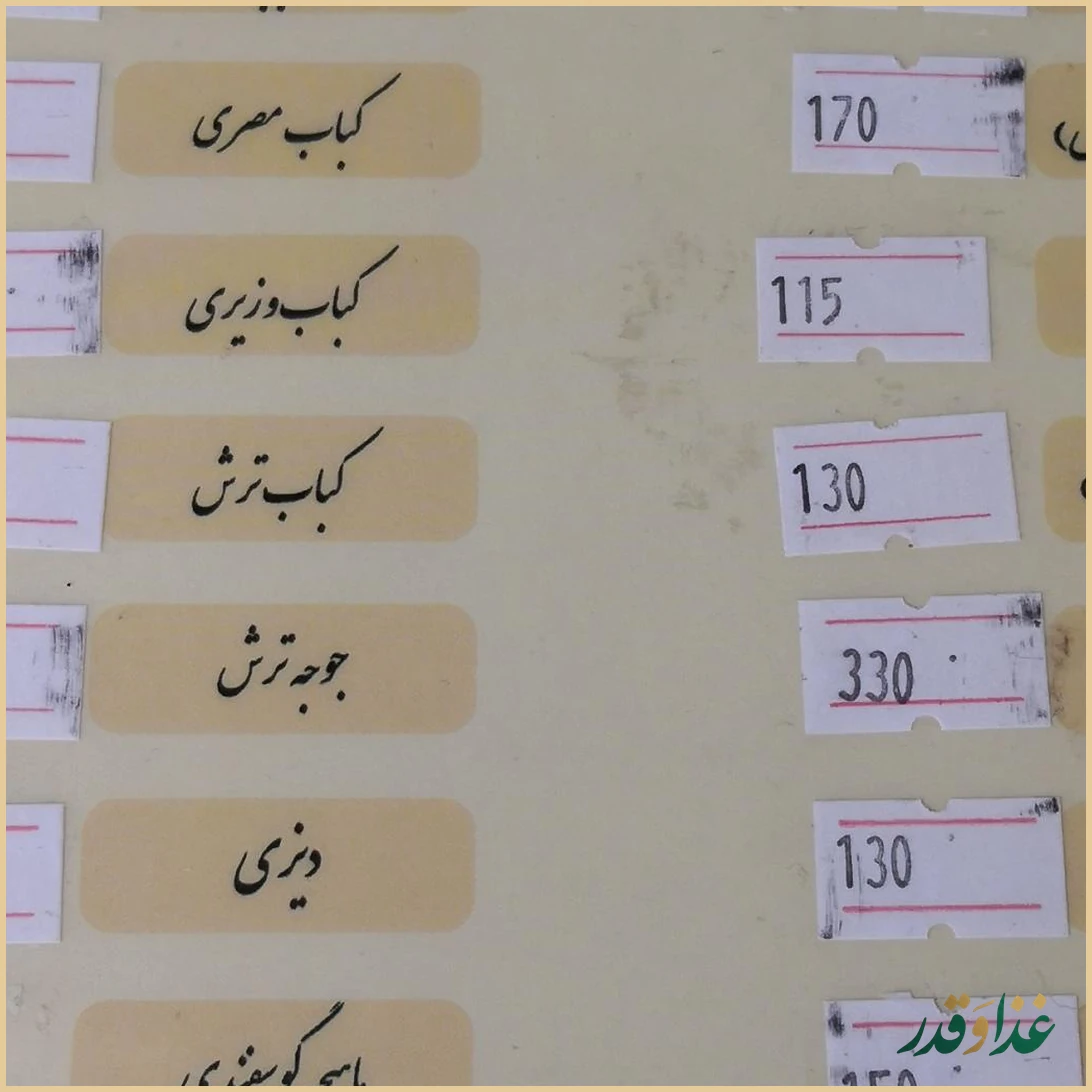 170
کباب مصری
115
کباب وزیری
130
کباب ترش
330
جوجه ترش
130
دیزی
گوسفندی
غذا و قدر